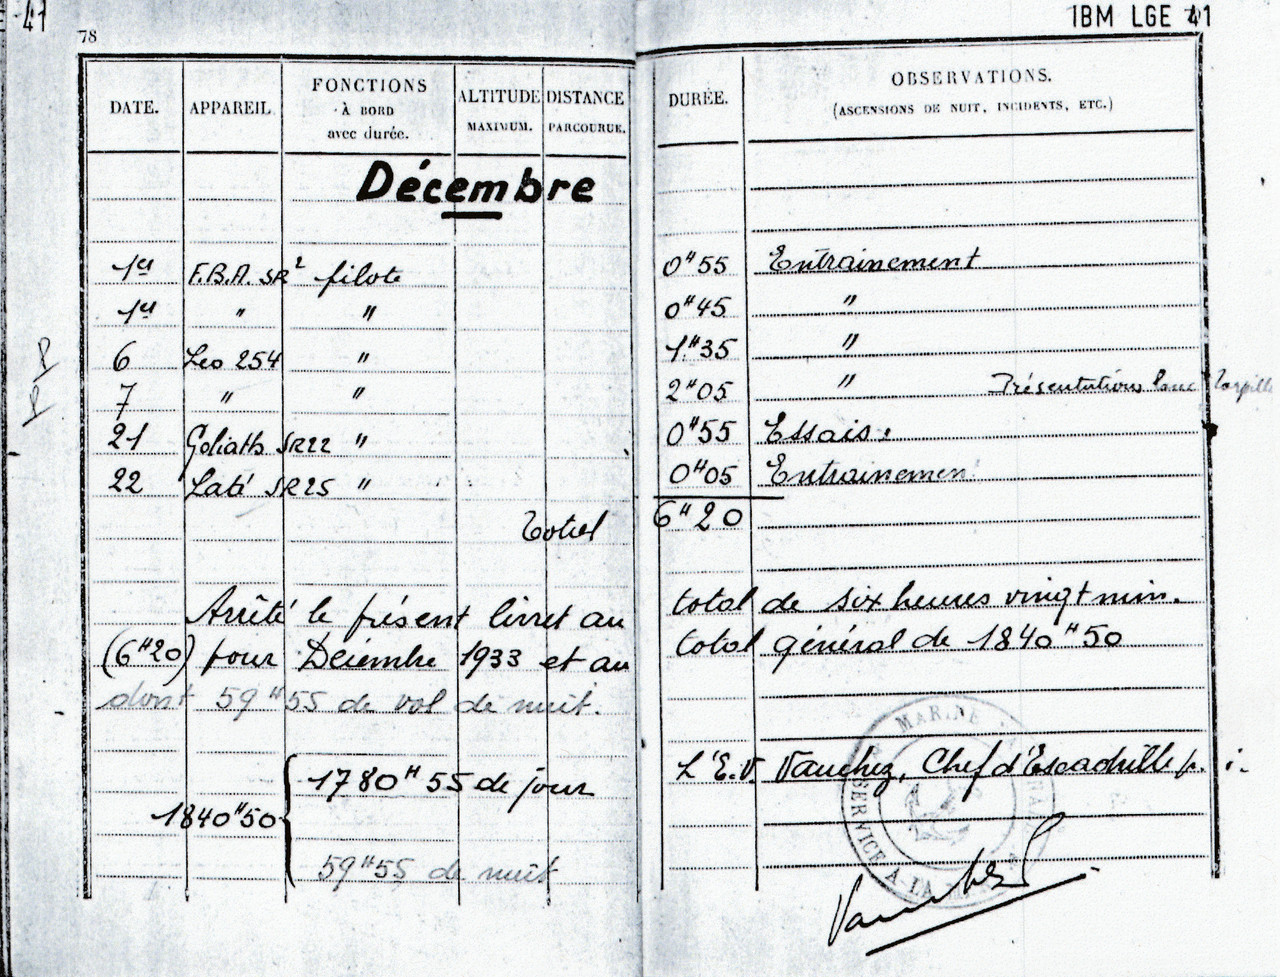 41
IBM LGE 41
78
DATE. APPAREIL. FONCTIONS À BORD avec durée. ALTITUDE MAXIMUM. DISTANCE PARCOURUE. DURÉE. OBSERVATIONS. (ASCENSIONS DE NUIT, INCIDENTS, ETC.)
Décembre
1er F.B.A. SR2 pilote 0H55 Entrainement
1er " " 0H45 "
6 Leo 254 " 1H35 "
7 " " 2H05 " Présentations
21 Goliath SR22 " 0H55 Essais.
22 Laté SR25 " 0H05 Entrainemen
Total 6H20
Arrêté le présent livret au total de six heures vingt min.
(6H20) pour Décembre 1933 et au total général de 1840H50
dont 59H55 de vol de nuit.
L'E.V. Vauchez, Chef d'Escadrille p. i.
1780H55 de jour
1840H50
59H55 de nuit
MARINE
SERVICE A LA MER